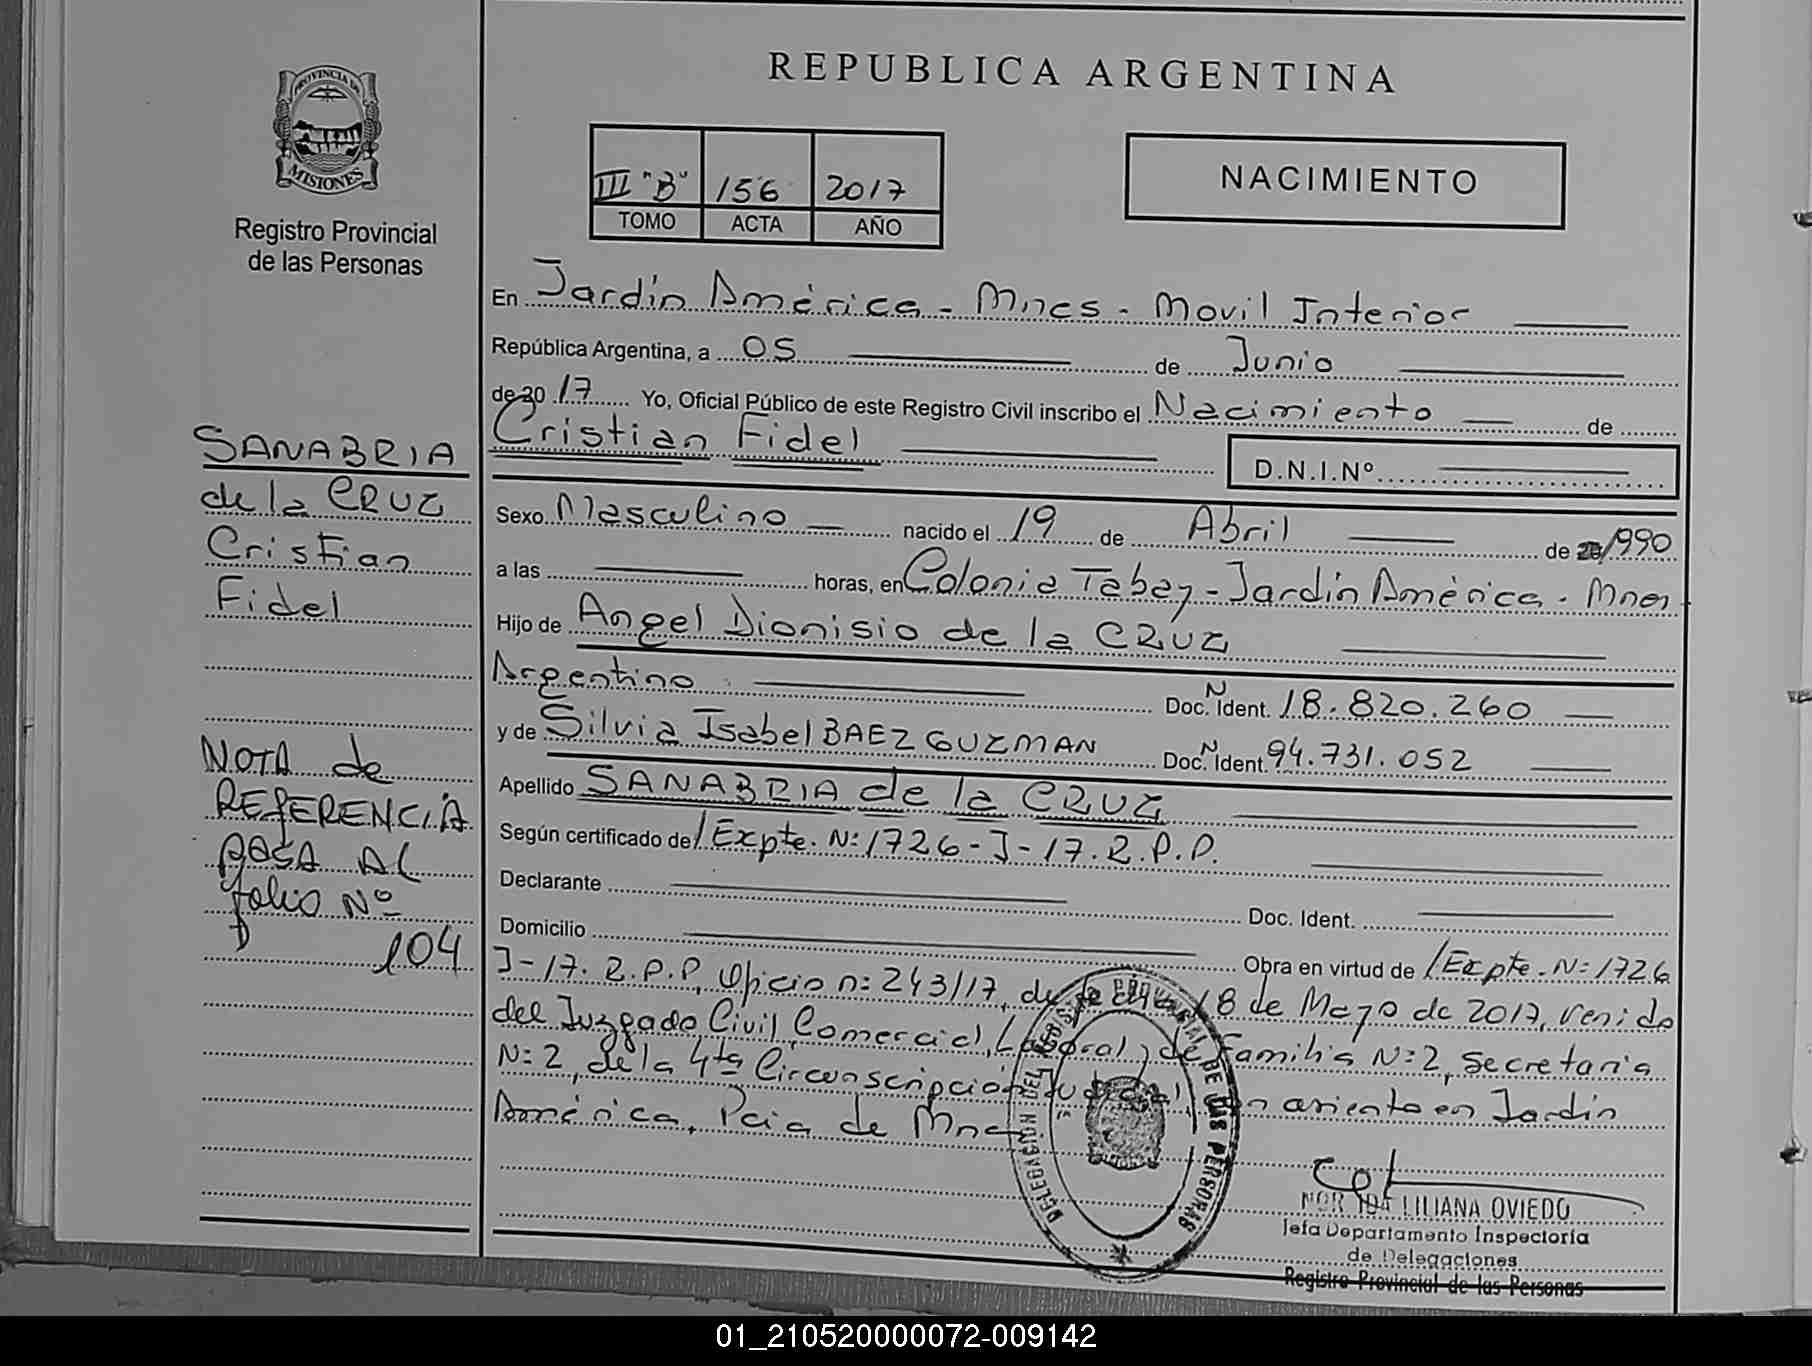 REPUBLICA ARGENTINA
PROVINCIA DE
MISIONES
Registro Provincial
de las Personas
III "B" 156 2017
TOMO ACTA AÑO
NACIMIENTO
En Jardín América - Mnes - Movil Interior
República Argentina, a 05 de Junio
de 20 17 Yo, Oficial Público de este Registro Civil inscribo el Nacimiento de
Cristian Fidel
D.N.I.Nº
Sexo Masculino nacido el 19 de Abril de 1990
a las horas, en Colonia Tabay - Jardín América - Mnes
Hijo de Angel Dionisio de la CRUZ
Argentino Doc. N Ident. 18.820.260
y de Silvia Isabel BAEZ GUZMAN Doc. N Ident. 94.731.052
Apellido SANABRIA de la CRUZ
Según certificado de / Expte. N: 1726 - J - 17. R.P.P.
Declarante Doc. Ident.
Domicilio
Obra en virtud de / Expte. N: 1726
J - 17. R.P.P, Oficio n: 243/17, de fecha 18 de Mayo de 2017, venido
del Juzgado Civil, Comercial, Laboral y de Familia N: 2, secretaria
N: 2, de la 4ta Circunscripción Judicial con asiento en Jardín
América, Pcia de Mnes
SANABRIA
de la CRUZ
Cristian
Fidel
NOTA de
REFERENCIA
PASA AL
folio Nº
104
DELEGACION DEL REGISTRO PROVINCIAL DE LAS PERSONAS
LILIANA OVIEDO
Jefa Departamento Inspectoria
de Delegaciones
Registro Provincial de las Personas
01_210520000072-009142